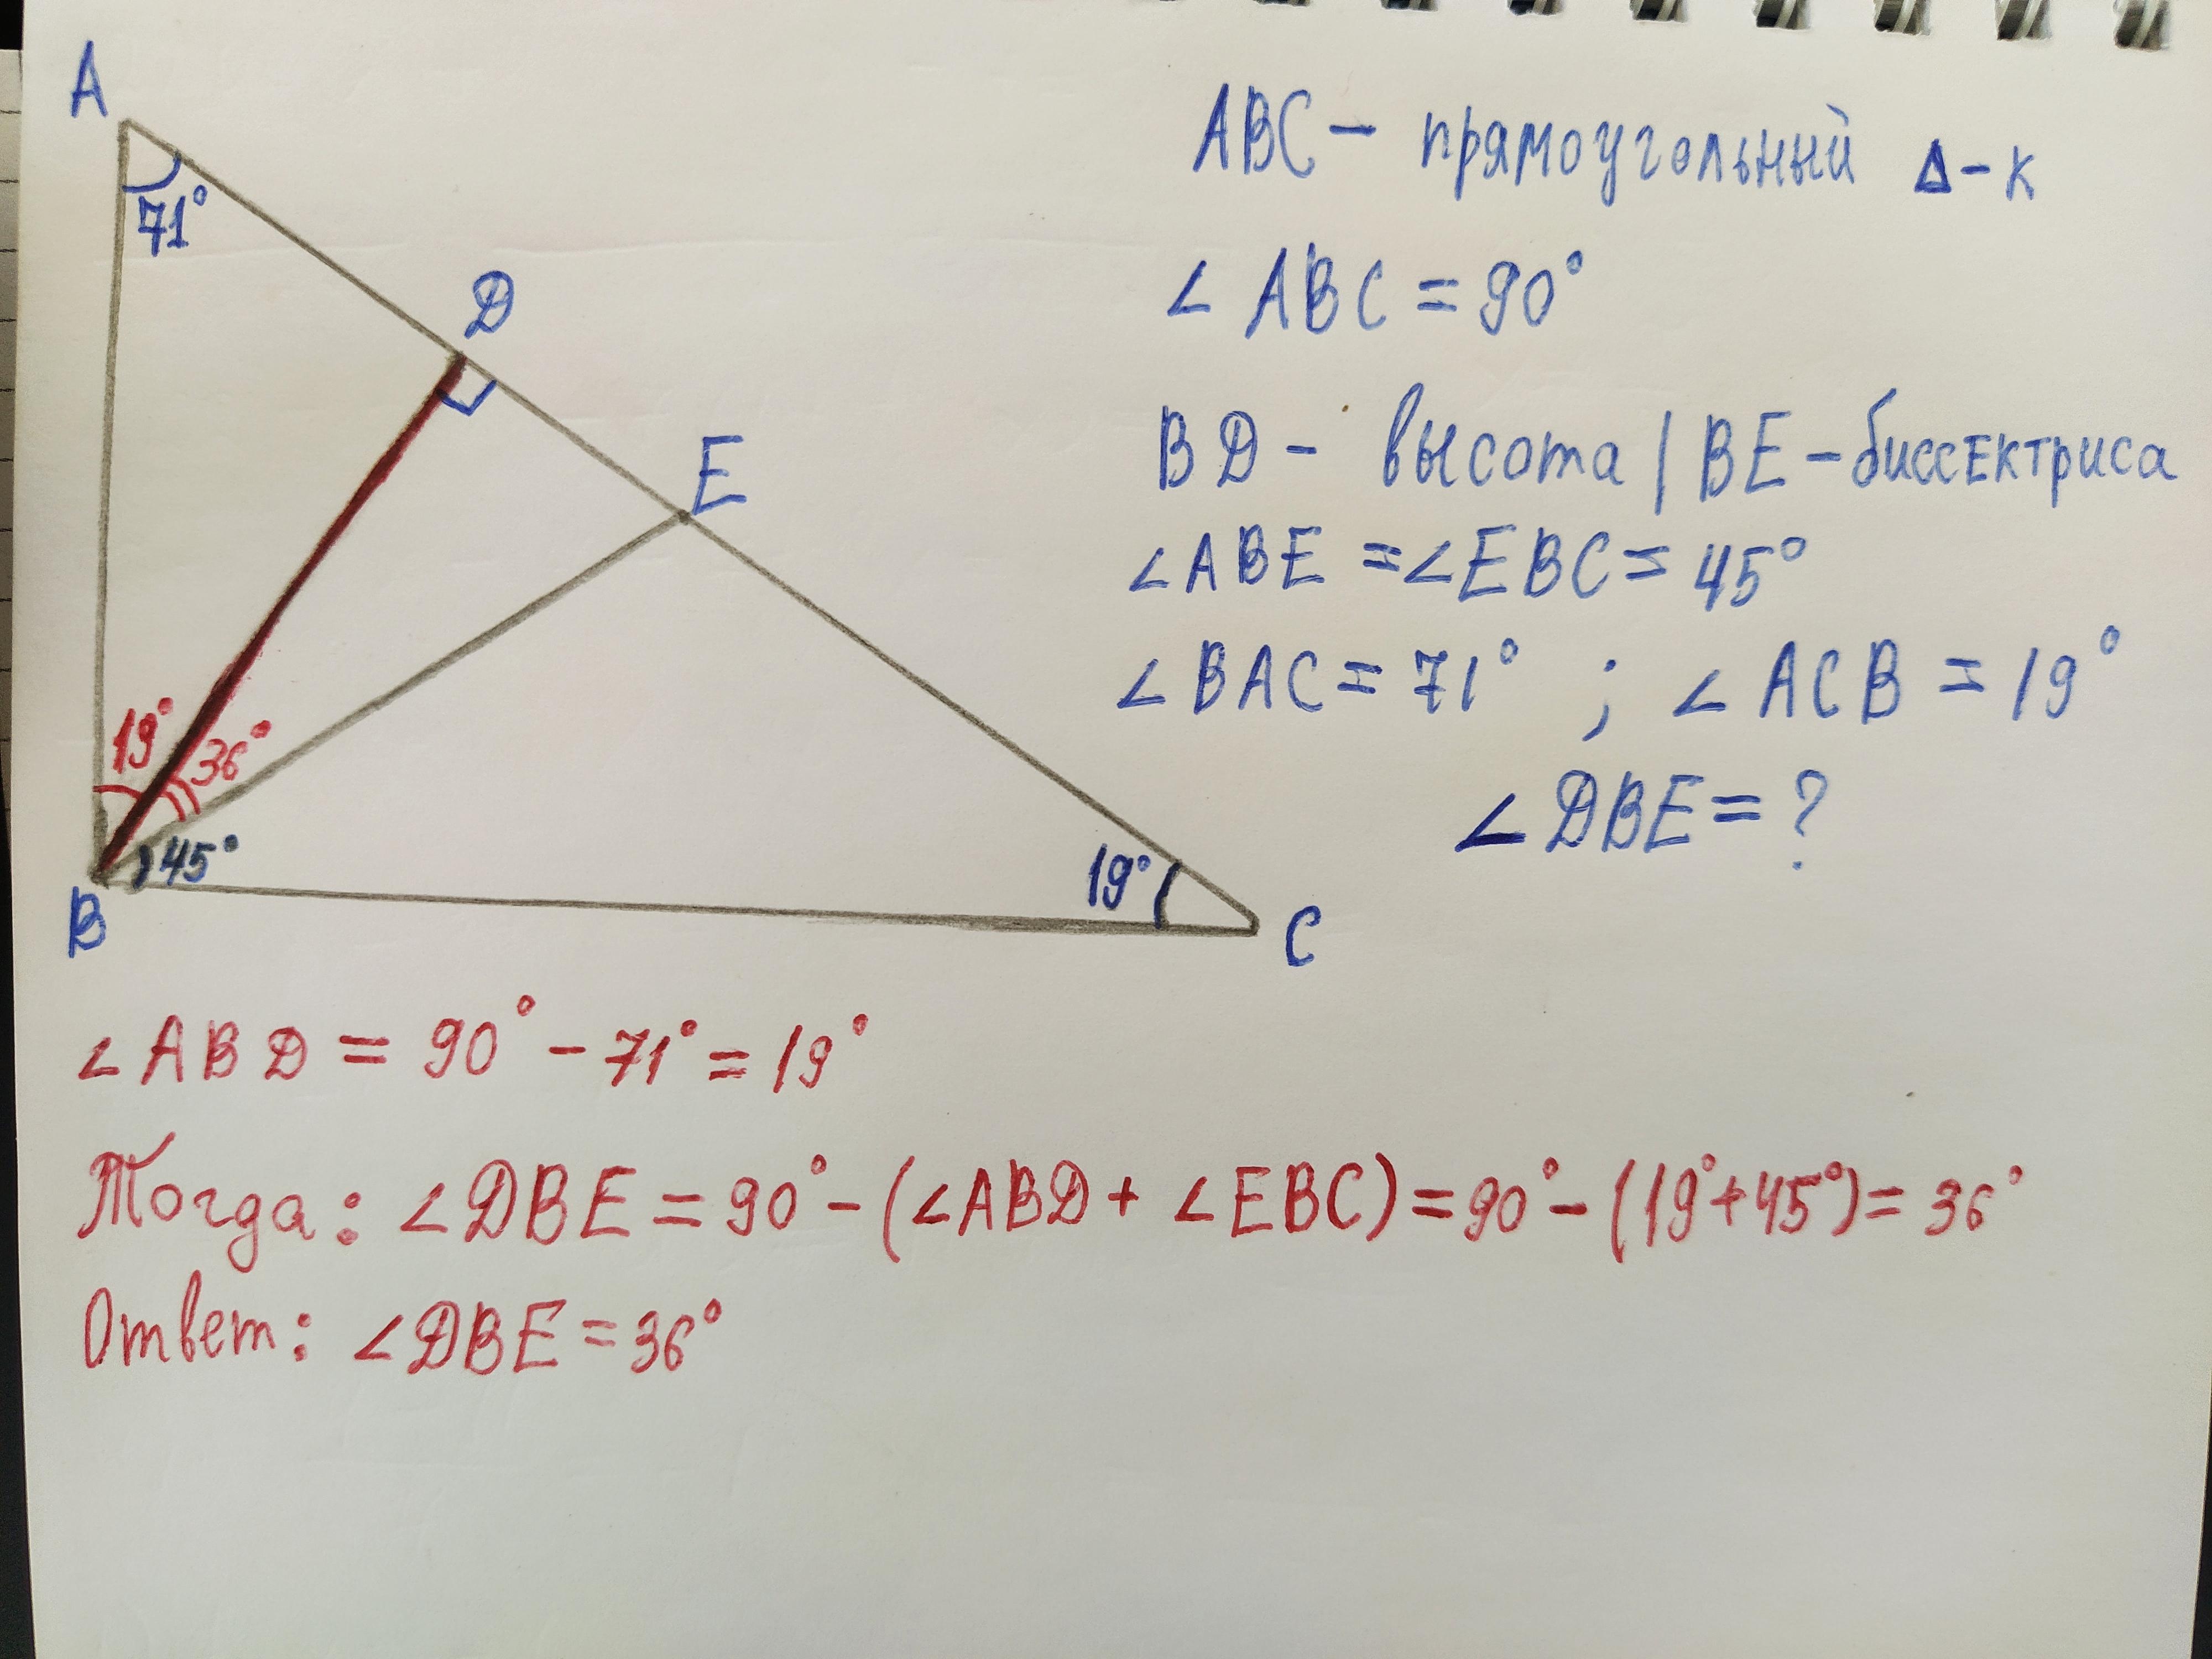 A
71°
D
E
19°
36°
45°
B
19°
C
ABC – прямоугольный Δ-к
∠ ABC = 90°
BD – высота | BE – биссЕктриса
∠ABE = ∠EBC = 45°
∠BAC = 71° ; ∠ACB = 19°
∠DBE = ?
∠ABD = 90° – 71° = 19°
Тогда: ∠DBE = 90° – (∠ABD + ∠EBC) = 90° – (19° + 45°) = 36°
Ответ: ∠DBE = 36°